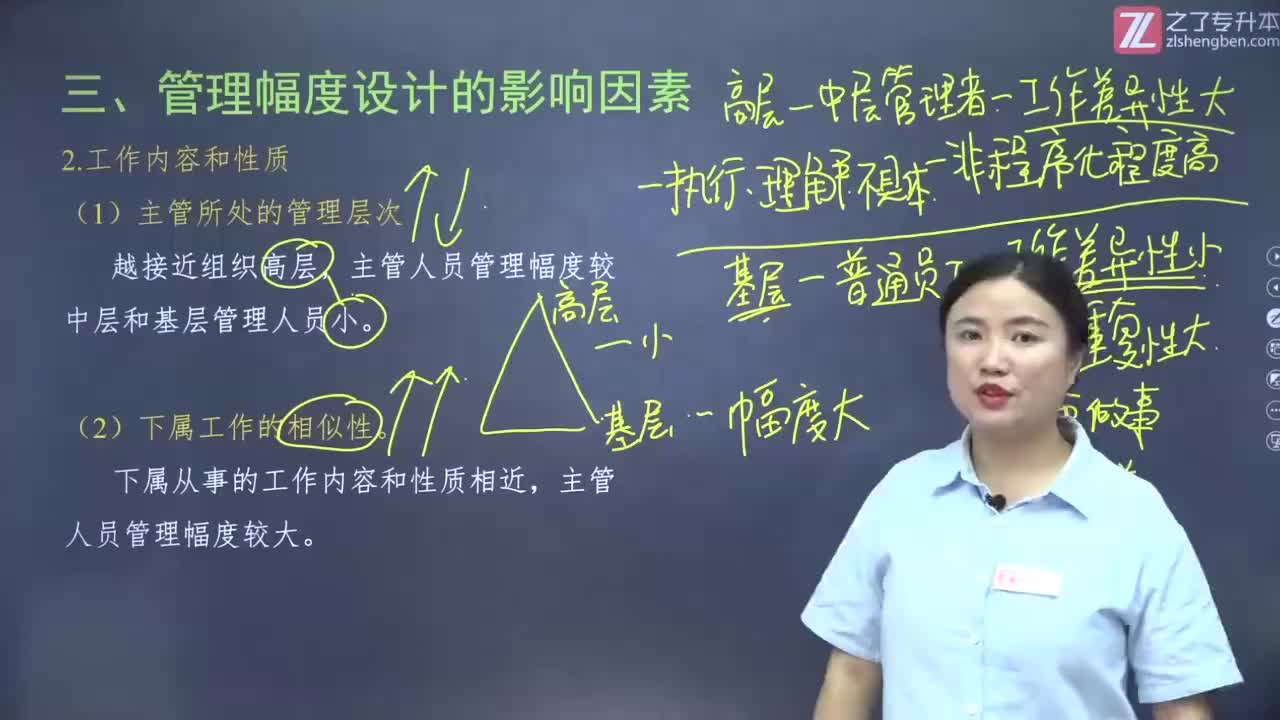 之了专升本
zlshengben.com
三、管理幅度设计的影响因素
2.工作内容和性质
（1）主管所处的管理层次
越接近组织高层，主管人员管理幅度较
中层和基层管理人员小。
（2）下属工作的相似性。
下属从事的工作内容和性质相近，主管
人员管理幅度较大。
高层一中层管理者一工作差异性大
一执行、理解、具体一非程序化程度高
基层一普通员工 工作差异性小
重复性大
做事
高层
一小
基层一幅度大